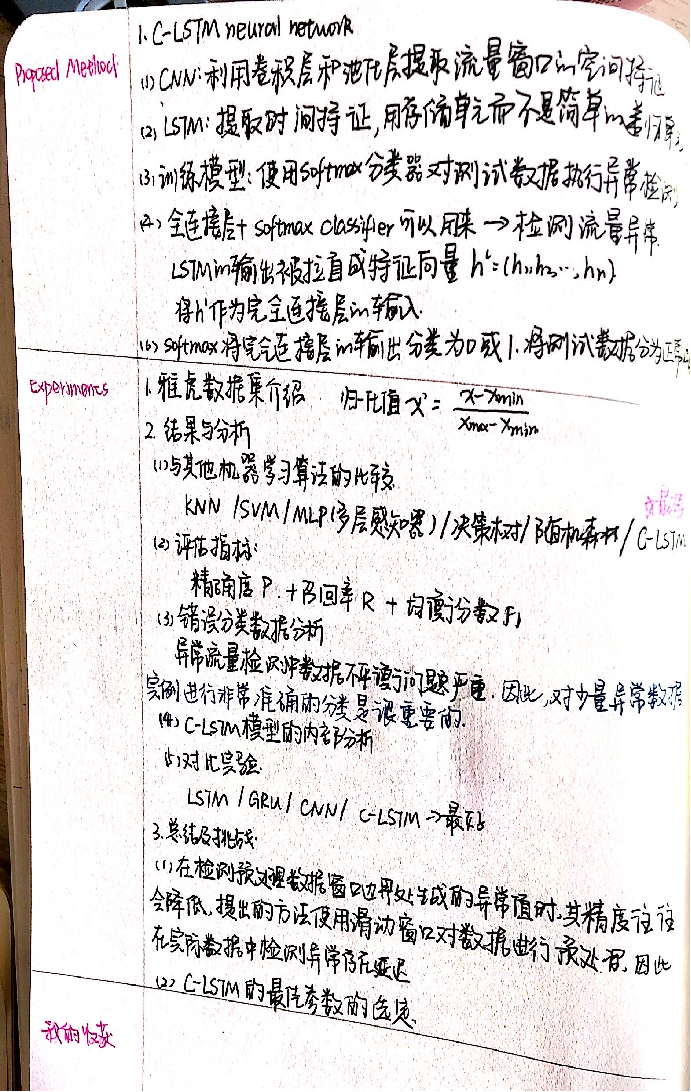 Proposed Method
1. C-LSTM neural network
(1) CNN: 利用卷积层和池化层提取流量窗口的空间特征
(2) LSTM: 提取时间特证,用存储单元而不是简单的递归单元
(3) 训练模型: 使用softmax分类器对测试数据执行异常检测
(4) 全连接层+ softmax classifier 可以用来 → 检测流量异常.
LSTM的输出被拉直成特征向量 h'=(h1,h2,…,hn)
将h'作为完全连接层的输入.
(5) softmax将完全连接层的输出分类为0或1. 将测试数据分为正常
Experiments
1. 雅虎数据集介绍 归一化值 x' = (x-xmin)/(xmax-xmin)
2. 结果与分析
(1) 与其他机器学习算法的比较
KNN / SVM / MLP(多层感知器) / 决策树 / 随机森林 / C-LSTM
(2) 评估指标:
精确度 P. + 召回率 R + 均衡分数 F1
(3) 错误分类数据分析
异常流量检测中数据不平衡问题严重. 因此,对少量异常数据
实例进行非常准确的分类是很重要的.
(4) C-LSTM模型的内部分析
(5) 对比实验
LSTM / GRU / CNN / C-LSTM → 最好
3. 总结及挑战
(1) 在检测预处理数据窗口边界处生成的异常值时,其精度往往
会降低. 提出的方法使用滑动窗口对数据进行预处理,因此
在实际数据中检测异常存在延迟
(2) C-LSTM的最佳参数的选定.
我的收获